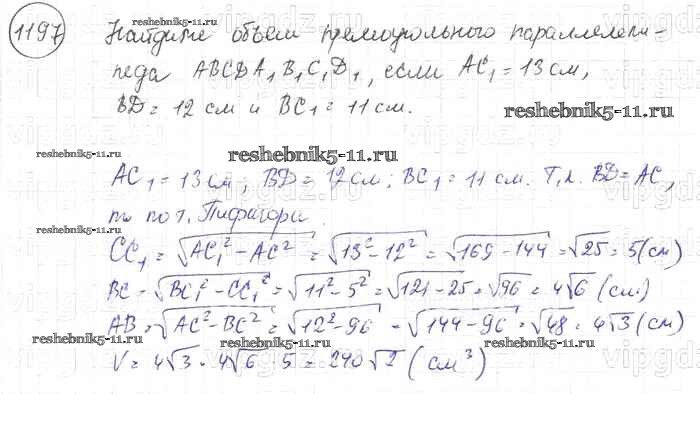 1197
Найдите объем прямоугольного параллелепи-
педа ABCDA₁B₁C₁D₁, если AC₁ = 13 см,
BD = 12 см и BC₁ = 11 см.
reshebnik5-11.ru
reshebnik5-11.ru
reshebnik5-11.ru
reshebnik5-11.ru
AC₁ = 13 см; BD = 12 см; BC₁ = 11 см. Т.к. BD = AC,
то по т. Пифагора
CC₁ = √(AC₁² - AC²) = √(13² - 12²) = √(169 - 144) = √25 = 5 (см)
BC = √(BC₁² - CC₁²) = √(11² - 5²) = √(121 - 25) = √96 = 4√6 (см)
AB = √(AC² - BC²) = √(12² - 96) = √(144 - 96) = √48 = 4√3 (см)
V = 4√3 · 4√6 · 5 = 240√2 (см³)
reshebnik5-11.ru
reshebnik5-11.ru
vipgdz